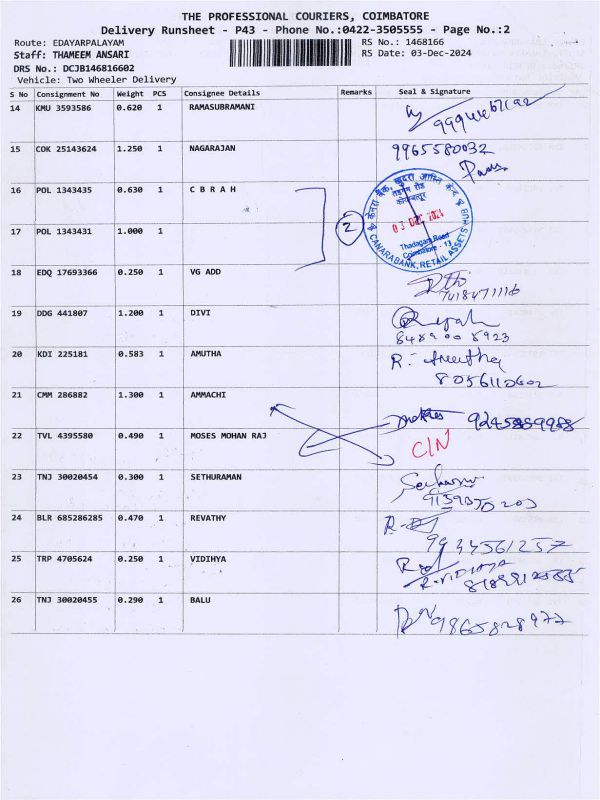 THE PROFESSIONAL COURIERS, COIMBATORE
Delivery Runsheet - P43 - Phone No.:0422-3505555 - Page No.:2
Route: EDAYARPALAYAM RS No.: 1468166
Staff: THAMEEM ANSARI RS Date: 03-Dec-2024
DRS No.: DCJB146816602
Vehicle: Two Wheeler Delivery
S No Consignment No Weight PCS Consignee Details Remarks Seal & Signature
14 KMU 3593586 0.620 1 RAMASUBRAMANI
15 COK 25143624 1.250 1 NAGARAJAN 9965580032
16 POL 1343435 0.630 1 C B R A H
2
03 DEC 2024
Thadagam Road
Coimbatore - 13
CANARA BANK, RETAIL ASSETS HUB
17 POL 1343431 1.000 1
18 EDQ 17693366 0.250 1 VG ADD
19 DDG 441807 1.200 1 DIVI
20 KDI 225181 0.583 1 AMUTHA R. Amutha
8056110602
21 CMM 286882 1.300 1 AMMACHI
C/N
22 TVL 4395580 0.490 1 MOSES MOHAN RAJ
23 TNJ 30020454 0.300 1 SETHURAMAN
24 BLR 685286285 0.470 1 REVATHY
9934561257
25 TRP 4705624 0.250 1 VIDIHYA
R. VIDHYA
26 TNJ 30020455 0.290 1 BALU
9865828977